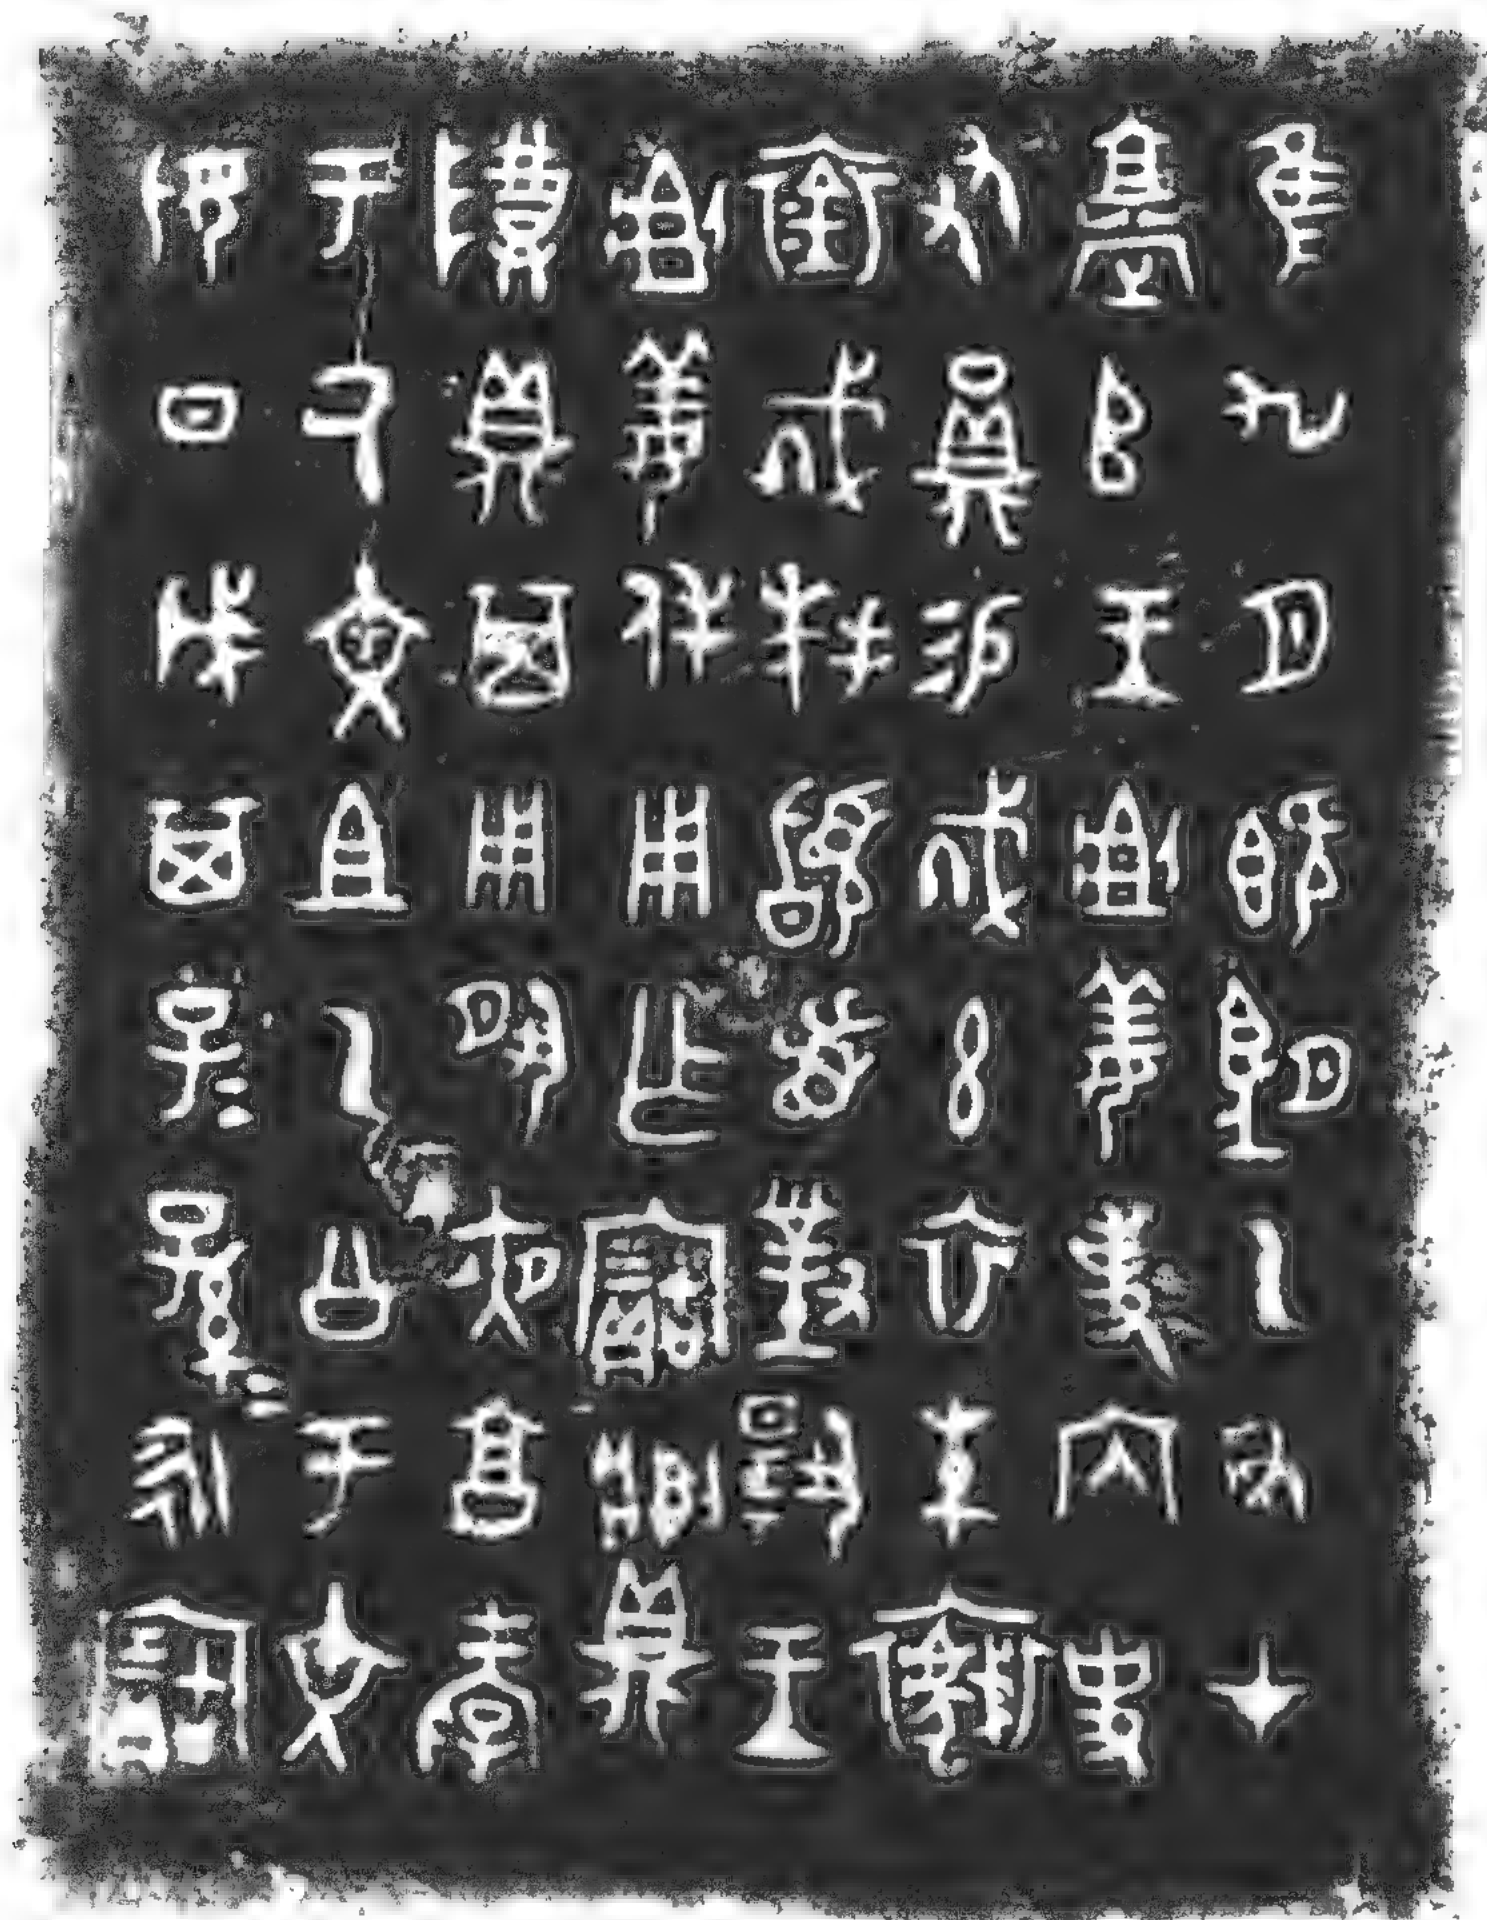 隹九月既望乙丑才
𩫏𠂤王俎姜事內史
友員易𢦚玄衣朱襮
裣𢦚拜𩒨首對揚王
俎姜休用乍寶䵼
尊鼎其用夙夜享孝
于氒文且乙公于文
妣日戊其子=孫=永寶